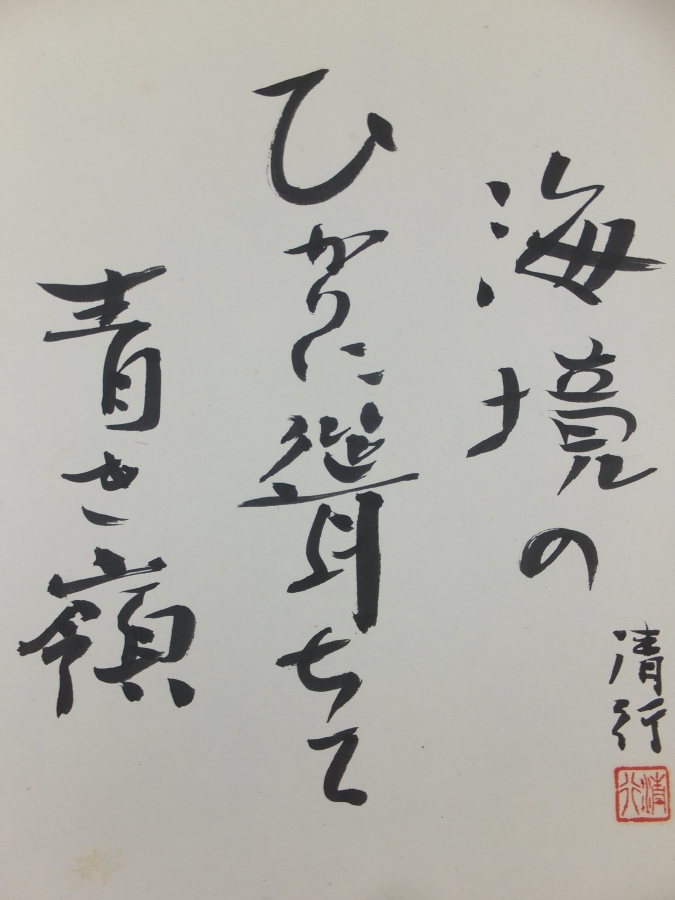 海境の
ひかりに聳ちて
青き嶺
清行
清行